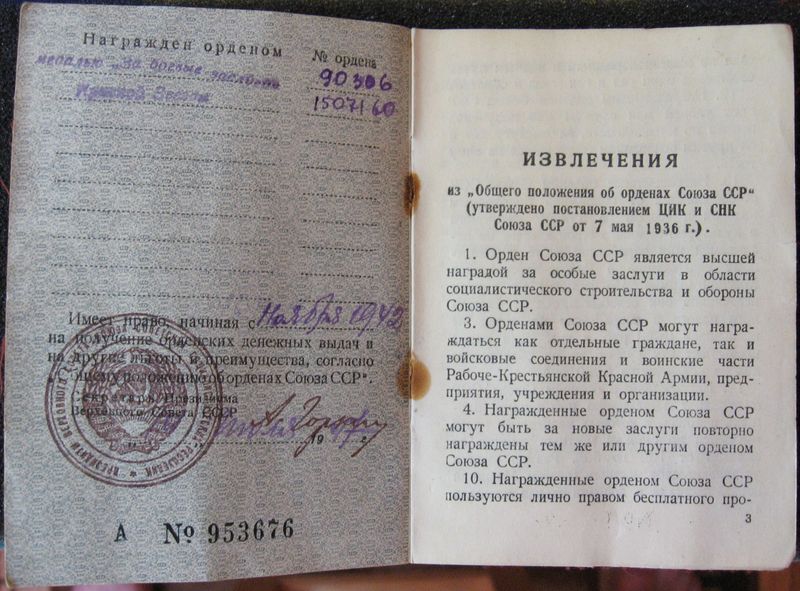 Награжден орденом
№ ордена
медалью „За боевые заслуги
90306
Красной Звезды
1507160
Имеет право, начиная с Ноября 1942
на получение орденских денежных выдач и
на другие льготы и преимущества, согласно
„Общему положению об орденах Союза ССР".
Секретарь Президиума
Верховного Совета СССР
19 г.
А № 953676
ИЗВЛЕЧЕНИЯ
из „Общего положения об орденах Союза ССР"
(утверждено постановлением ЦИК и СНК
Союза ССР от 7 мая 1936 г.).
1. Орден Союза ССР является высшей
наградой за особые заслуги в области
социалистического строительства и обороны
Союза ССР.
3. Орденами Союза ССР могут награ-
ждаться как отдельные граждане, так и
войсковые соединения и воинские части
Рабоче-Крестьянской Красной Армии, пред-
приятия, учреждения и организации.
4. Награжденные орденом Союза ССР
могут быть за новые заслуги повторно
награждены тем же или другим орденом
Союза ССР.
10. Награжденные орденом Союза ССР
пользуются лично правом бесплатного про-
3